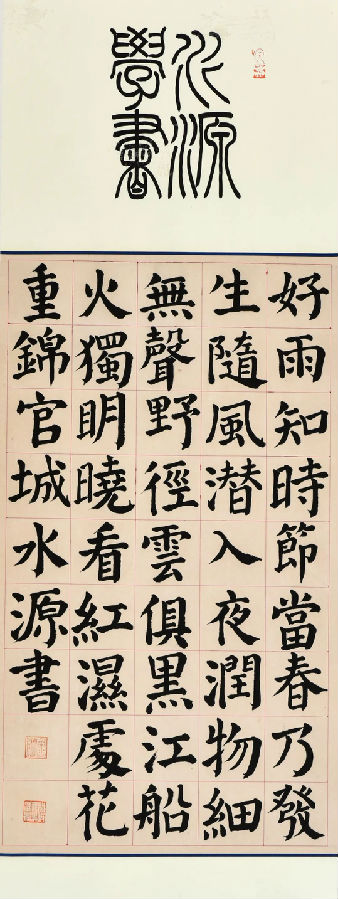 水源
學書
好雨知時節當春乃發
生隨風潜入夜潤物細
無聲野徑雲俱黑江船
火獨眀曉看紅濕處花
重錦官城水源書